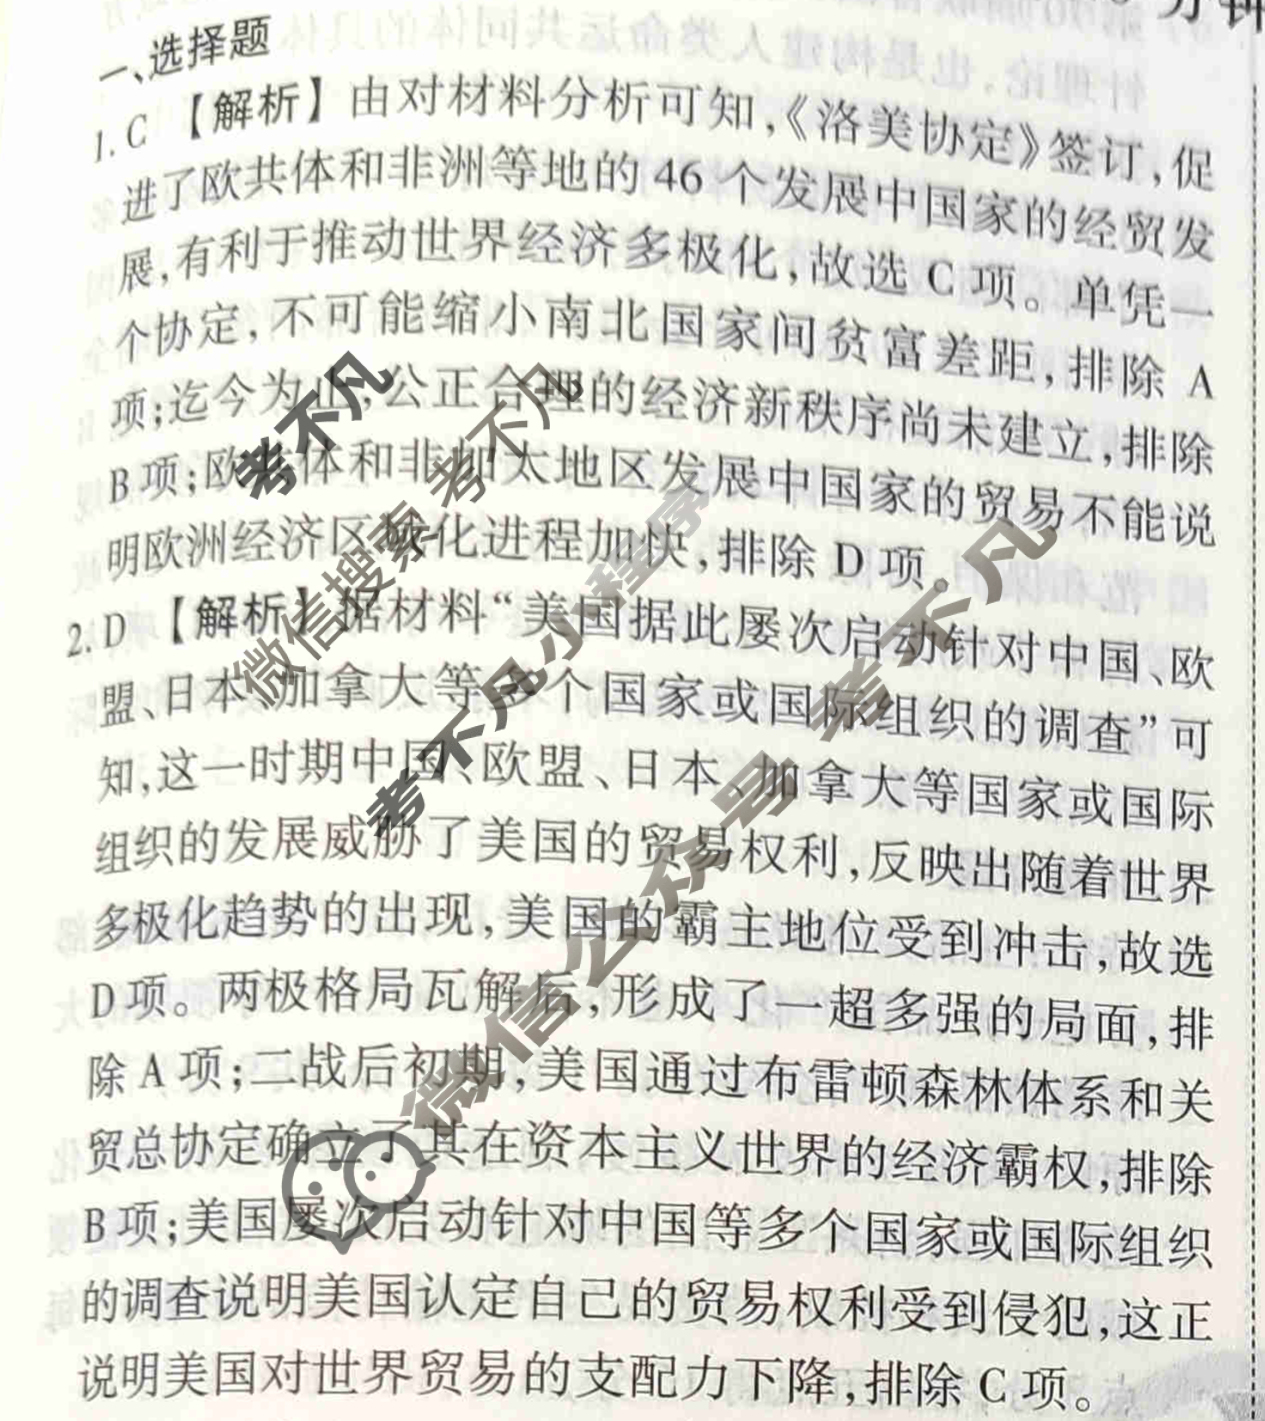 分钟
一、选择题
1.C 【解析】由对材料分析可知,《洛美协定》签订,促
进了欧共体和非洲等地的46个发展中国家的经贸发
展,有利于推动世界经济多极化,故选C项。单凭一
个协定,不可能缩小南北国家间贫富差距,排除A
项;迄今为止,公正合理的经济新秩序尚未建立,排除
B项;欧共体和非加太地区发展中国家的贸易不能说
明欧洲经济区域化进程加快,排除D项。
2.D 【解析】据材料“美国据此屡次启动针对中国、欧
盟、日本、加拿大等多个国家或国际组织的调查”可
知,这一时期中国、欧盟、日本、加拿大等国家或国际
组织的发展威胁了美国的贸易权利,反映出随着世界
多极化趋势的出现,美国的霸主地位受到冲击,故选
D项。两极格局瓦解后,形成了一超多强的局面,排
除A项;二战后初期,美国通过布雷顿森林体系和关
贸总协定确立了其在资本主义世界的经济霸权,排除
B项;美国屡次启动针对中国等多个国家或国际组织
的调查说明美国认定自己的贸易权利受到侵犯,这正
说明美国对世界贸易的支配力下降,排除C项。
考不凡
微信搜索 考不凡
考不凡小程序
微信公众号 考不凡